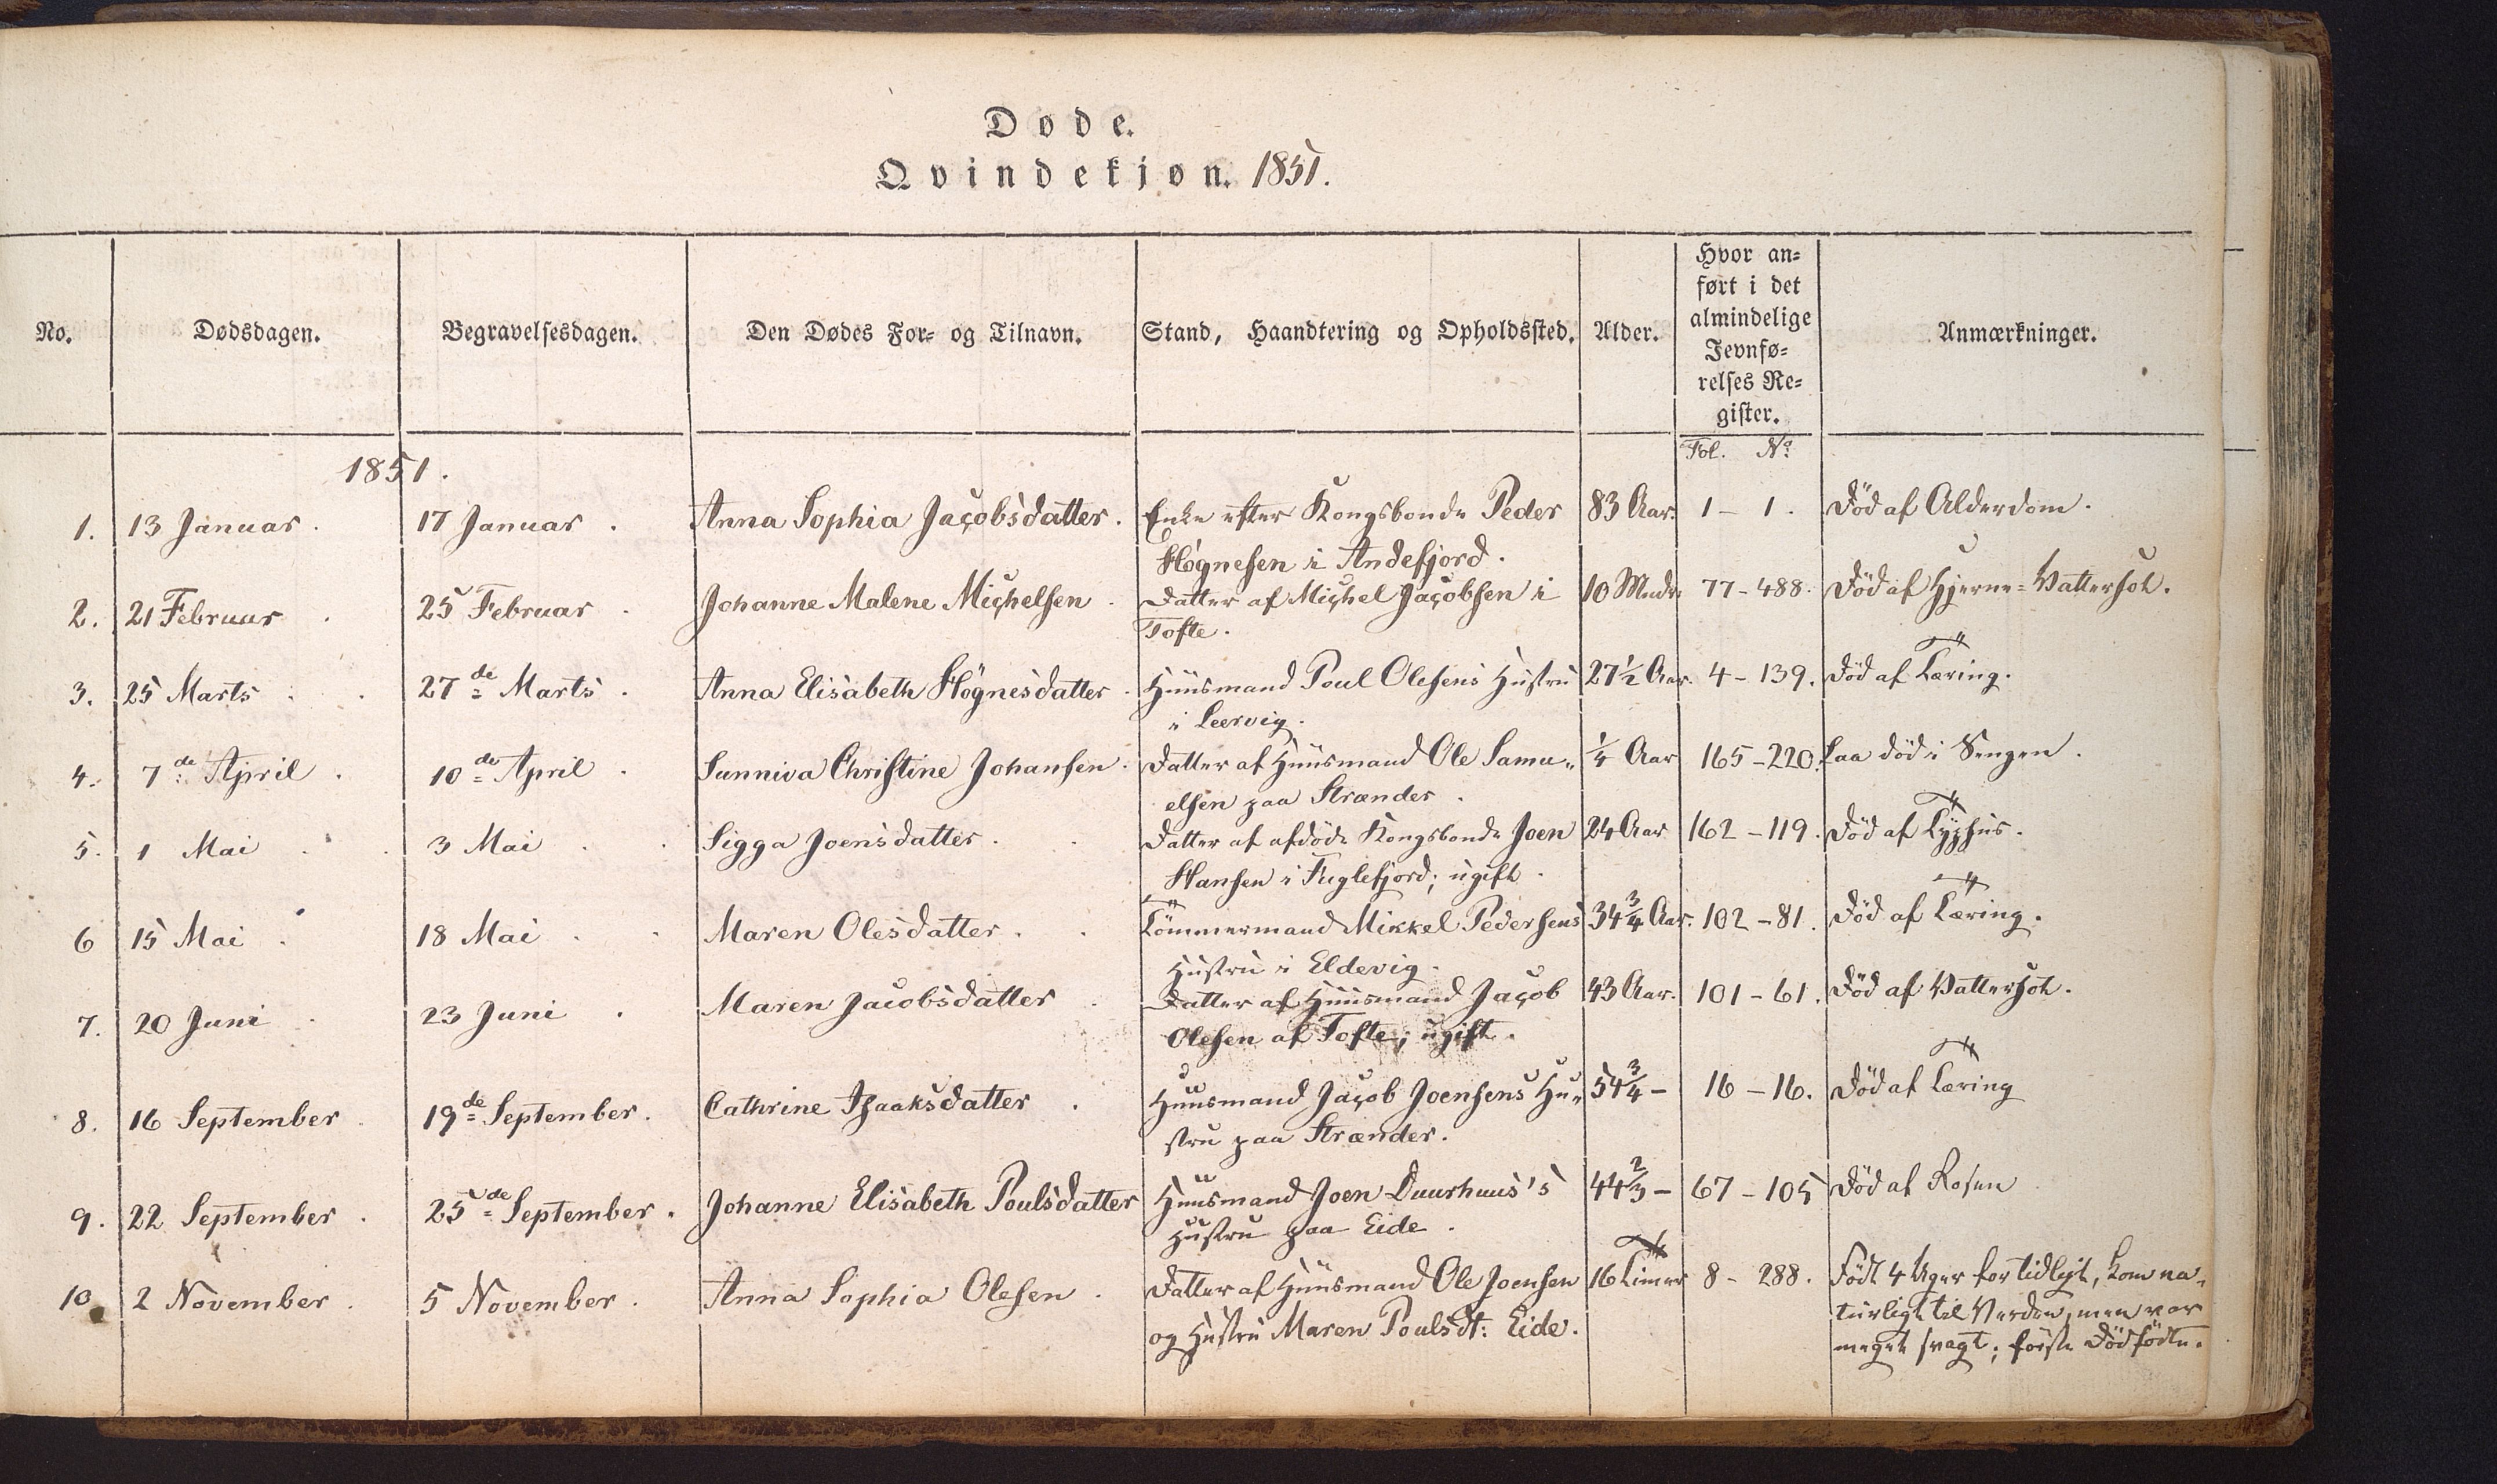 Døde.
Qvindekjøn. 1851.
No. Dødsdagen. Begravelsesdagen. Den Dødes For- og Tilnavn. Stand, Haandtering og Opholdssted. Alder. Hvor an=
ført i det
almindelige
Jevnfø=
relses Re=
gister. Anmærkninger.
Fol. No.
1851.
1. 13 Januar. 17 Januar. Anna Sophia Jacobsdatter. Enke efter Kongsbonde Peder 83 Aar. 1 - 1. Død af Alderdom.
Høgnesen i Andefjord.
2. 21 Februar. 25 Februar. Johanne Malene Michelsen. Datter af Michel Jacobsen i 10 Mndr. 77 - 488. Død af Hjerne=Vattersot.
Tofte.
3. 25 Marts. 27de Marts. Anna Elisabeth Høgnesdatter. Huusmand Poul Olesens Hustru 27½ Aar. 4 - 139. Død af Tæring.
i Leervig.
4. 7de April. 10de April. Sunniva Christine Johansen. Datter af Huusmand Ole Samu= ¼ Aar 165 - 220. Laa død i Sengen.
elsen paa Strænder.
5. 1 Mai. 3 Mai. Sigga Joensdatter. Datter af afdøde Kongsbonde Joen 24 Aar 162 - 119. Død af Typhus.
Hansen i Fuglefjord; ugift.
6 15 Mai. 18 Mai. Maren Olesdatter. Tömmermand Mikkel Pedersens 34¾ Aar. 102 - 81. Død af Tæring.
Hustru i Eldevig.
7. 20 Juni. 23 Juni. Maren Jacobsdatter. Datter af Huusmand Jacob 43 Aar. 101 - 61. Død af Vattersot.
Olesen af Tofte; ugift.
8. 16 September. 19de September. Cathrine Isaaksdatter. Huusmand Jacob Joensens Hu= 54¾ - 16 - 16. Død af Tæring
stru paa Strænder.
9. 22 September. 25de September. Johanne Elisabeth Poulsdatter Huusmand Joen Duurhuus's 44⅔ - 67 - 105 Død af Rosen
Hustru paa Eide.
10. 2 November. 5 November. Anna Sophia Olesen. Datter af Huusmand Ole Joensen 16 Timer 8 - 288. Født 4 Uger for tidligt, kom na=
og Hustru Maren Poulsdt: Eide. turligt til Verden, men var
meget svagt; første Dødfødte.